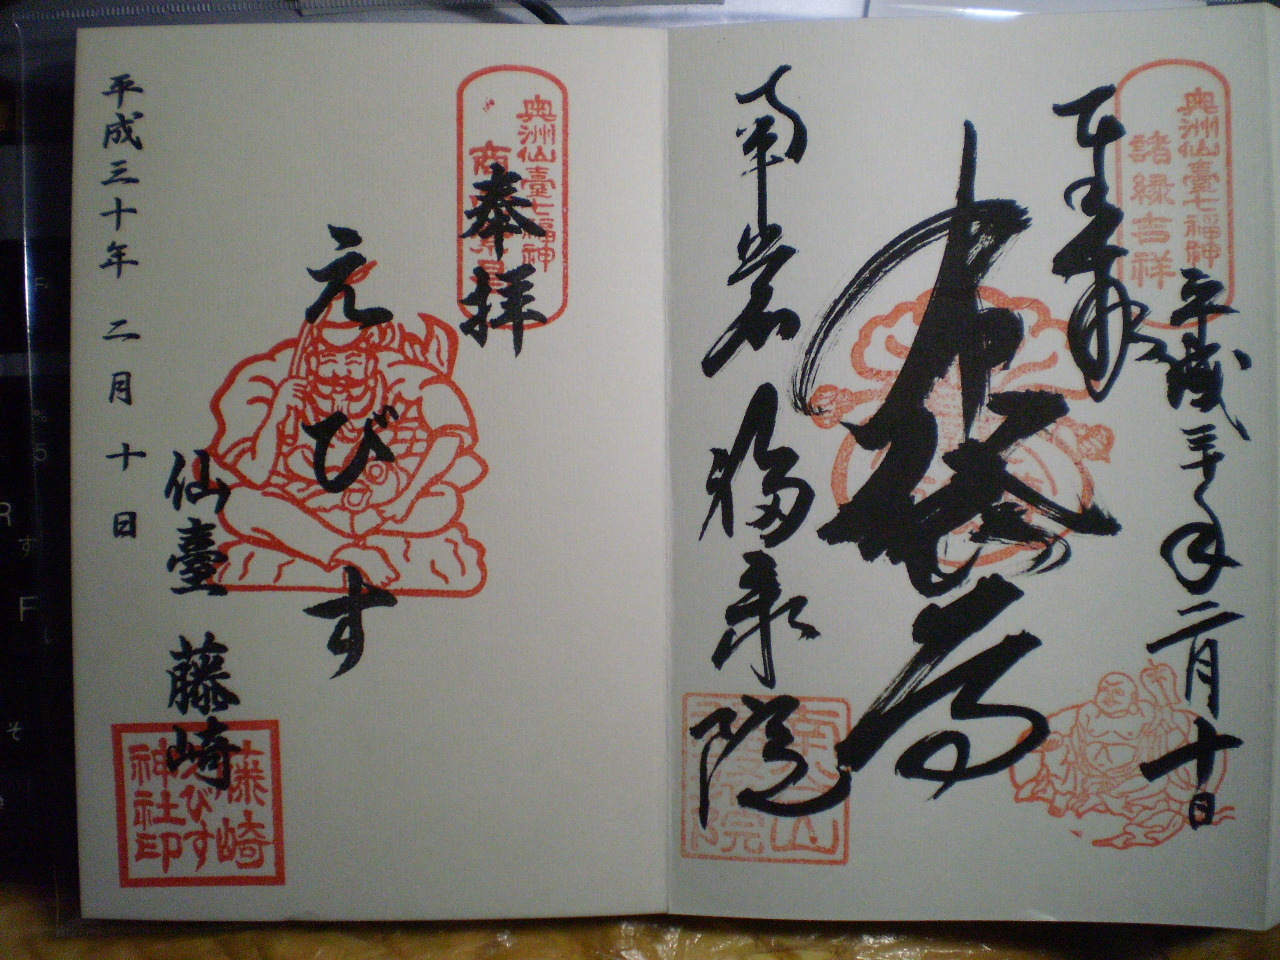 奥洲仙臺七福神
諸縁吉祥
奉拝
平成三十年二月十日
布袋尊
南岩
福聚院
奥洲仙臺七福神
商
奉拝
えびす
仙臺 藤崎
平成三十年 二月 十日
藤崎
えびす
神社印